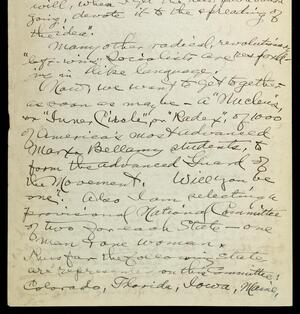 will, when I get
going, devote it to the spreading of
the idea".
Many other radical, revolutionary
"left-wing" Socialists are
ing in like language.
Now, we want to get together
as soon as may be - a "Nucleus",
or "Inner Circle", or "Radex", of 1000
of America's most advanced
Marx-Bellamy students, to
form the advanced Guard of
the Movement. Will you be
one? Also I am selecting a
provisional National Committee
of two for each State - one
man & one woman.
Thus far the following states
are represented on this Committee:
Colorado, Florida, Iowa, Maine,